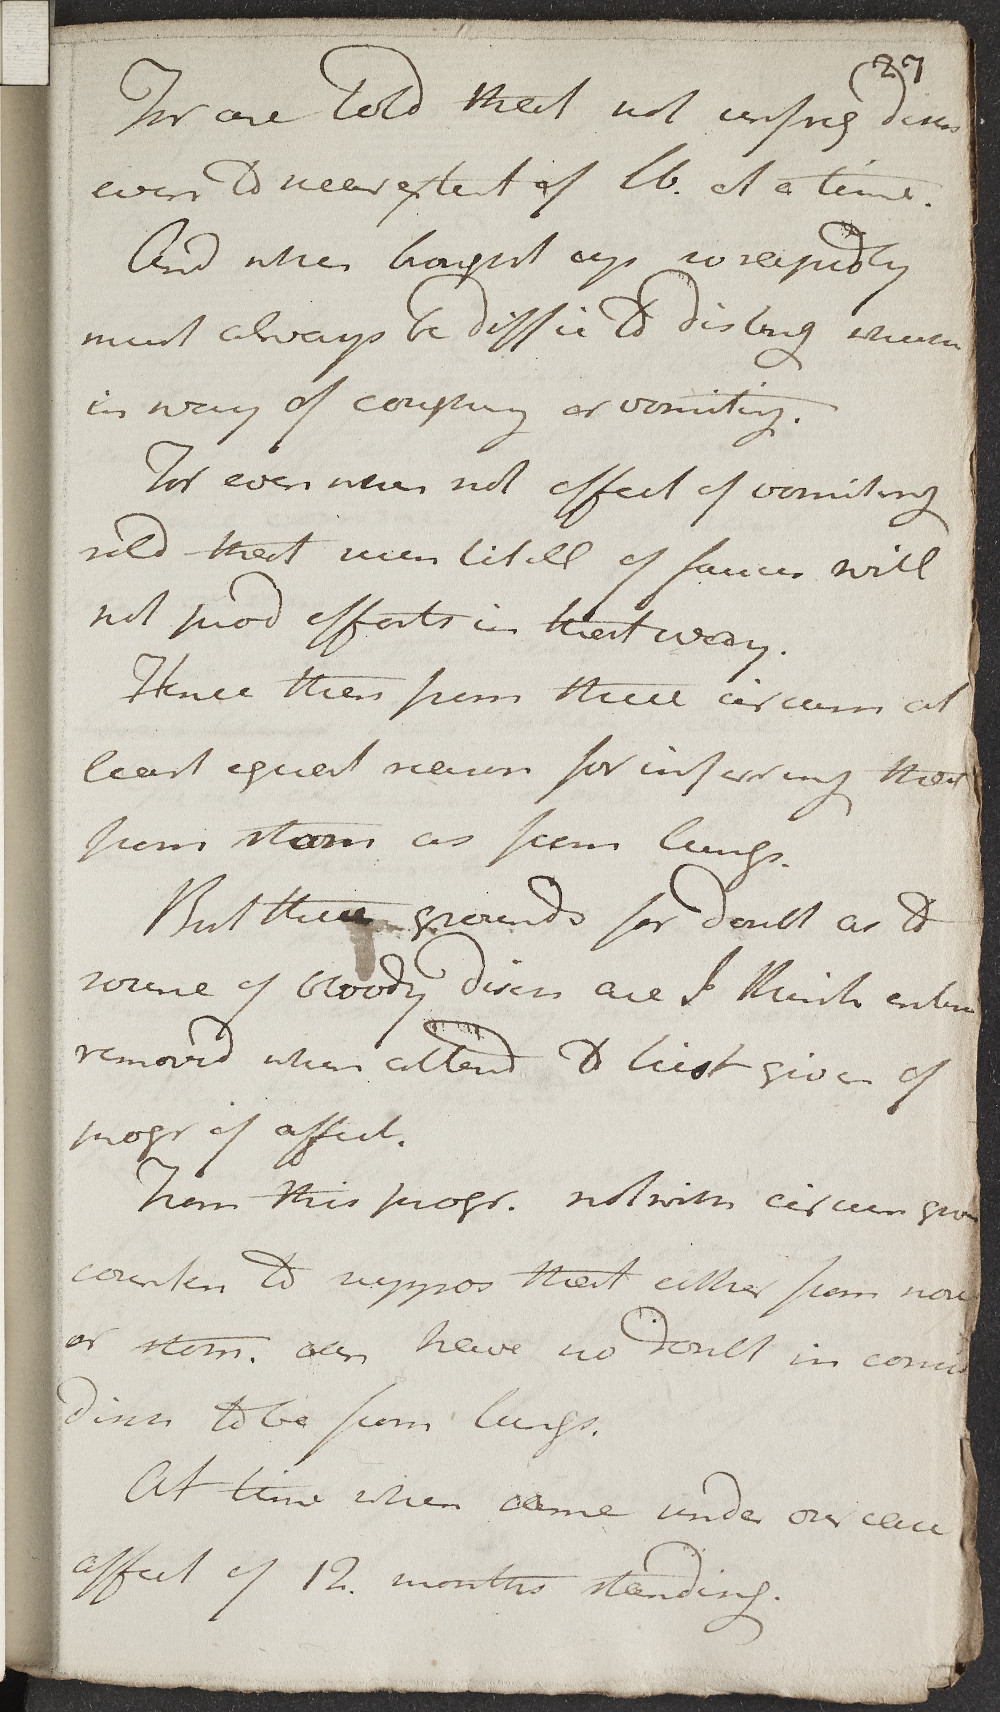 27
For are told that not unfreq disch
even to near extent of lb. at a time.
And when brought up so rapidly
must always be diffic to disting when
in way of coughing or vomiting.
For even when not effect of vomiting
seld that even titill of fauces will
not prod efforts in that way.
Hence then from these circum at
least equal reason for inferring that
from stom as from lungs.
But these grounds for doubt as to
source of bloody disch are I think entire
removed when attend to hist given of
progr of affect.
From this progr. notwith circum
counten to suppos that either from nose
or stom. can have no doubt in consid
disch to be from lungs.
At time when came under our care
affect of 12. months standing.